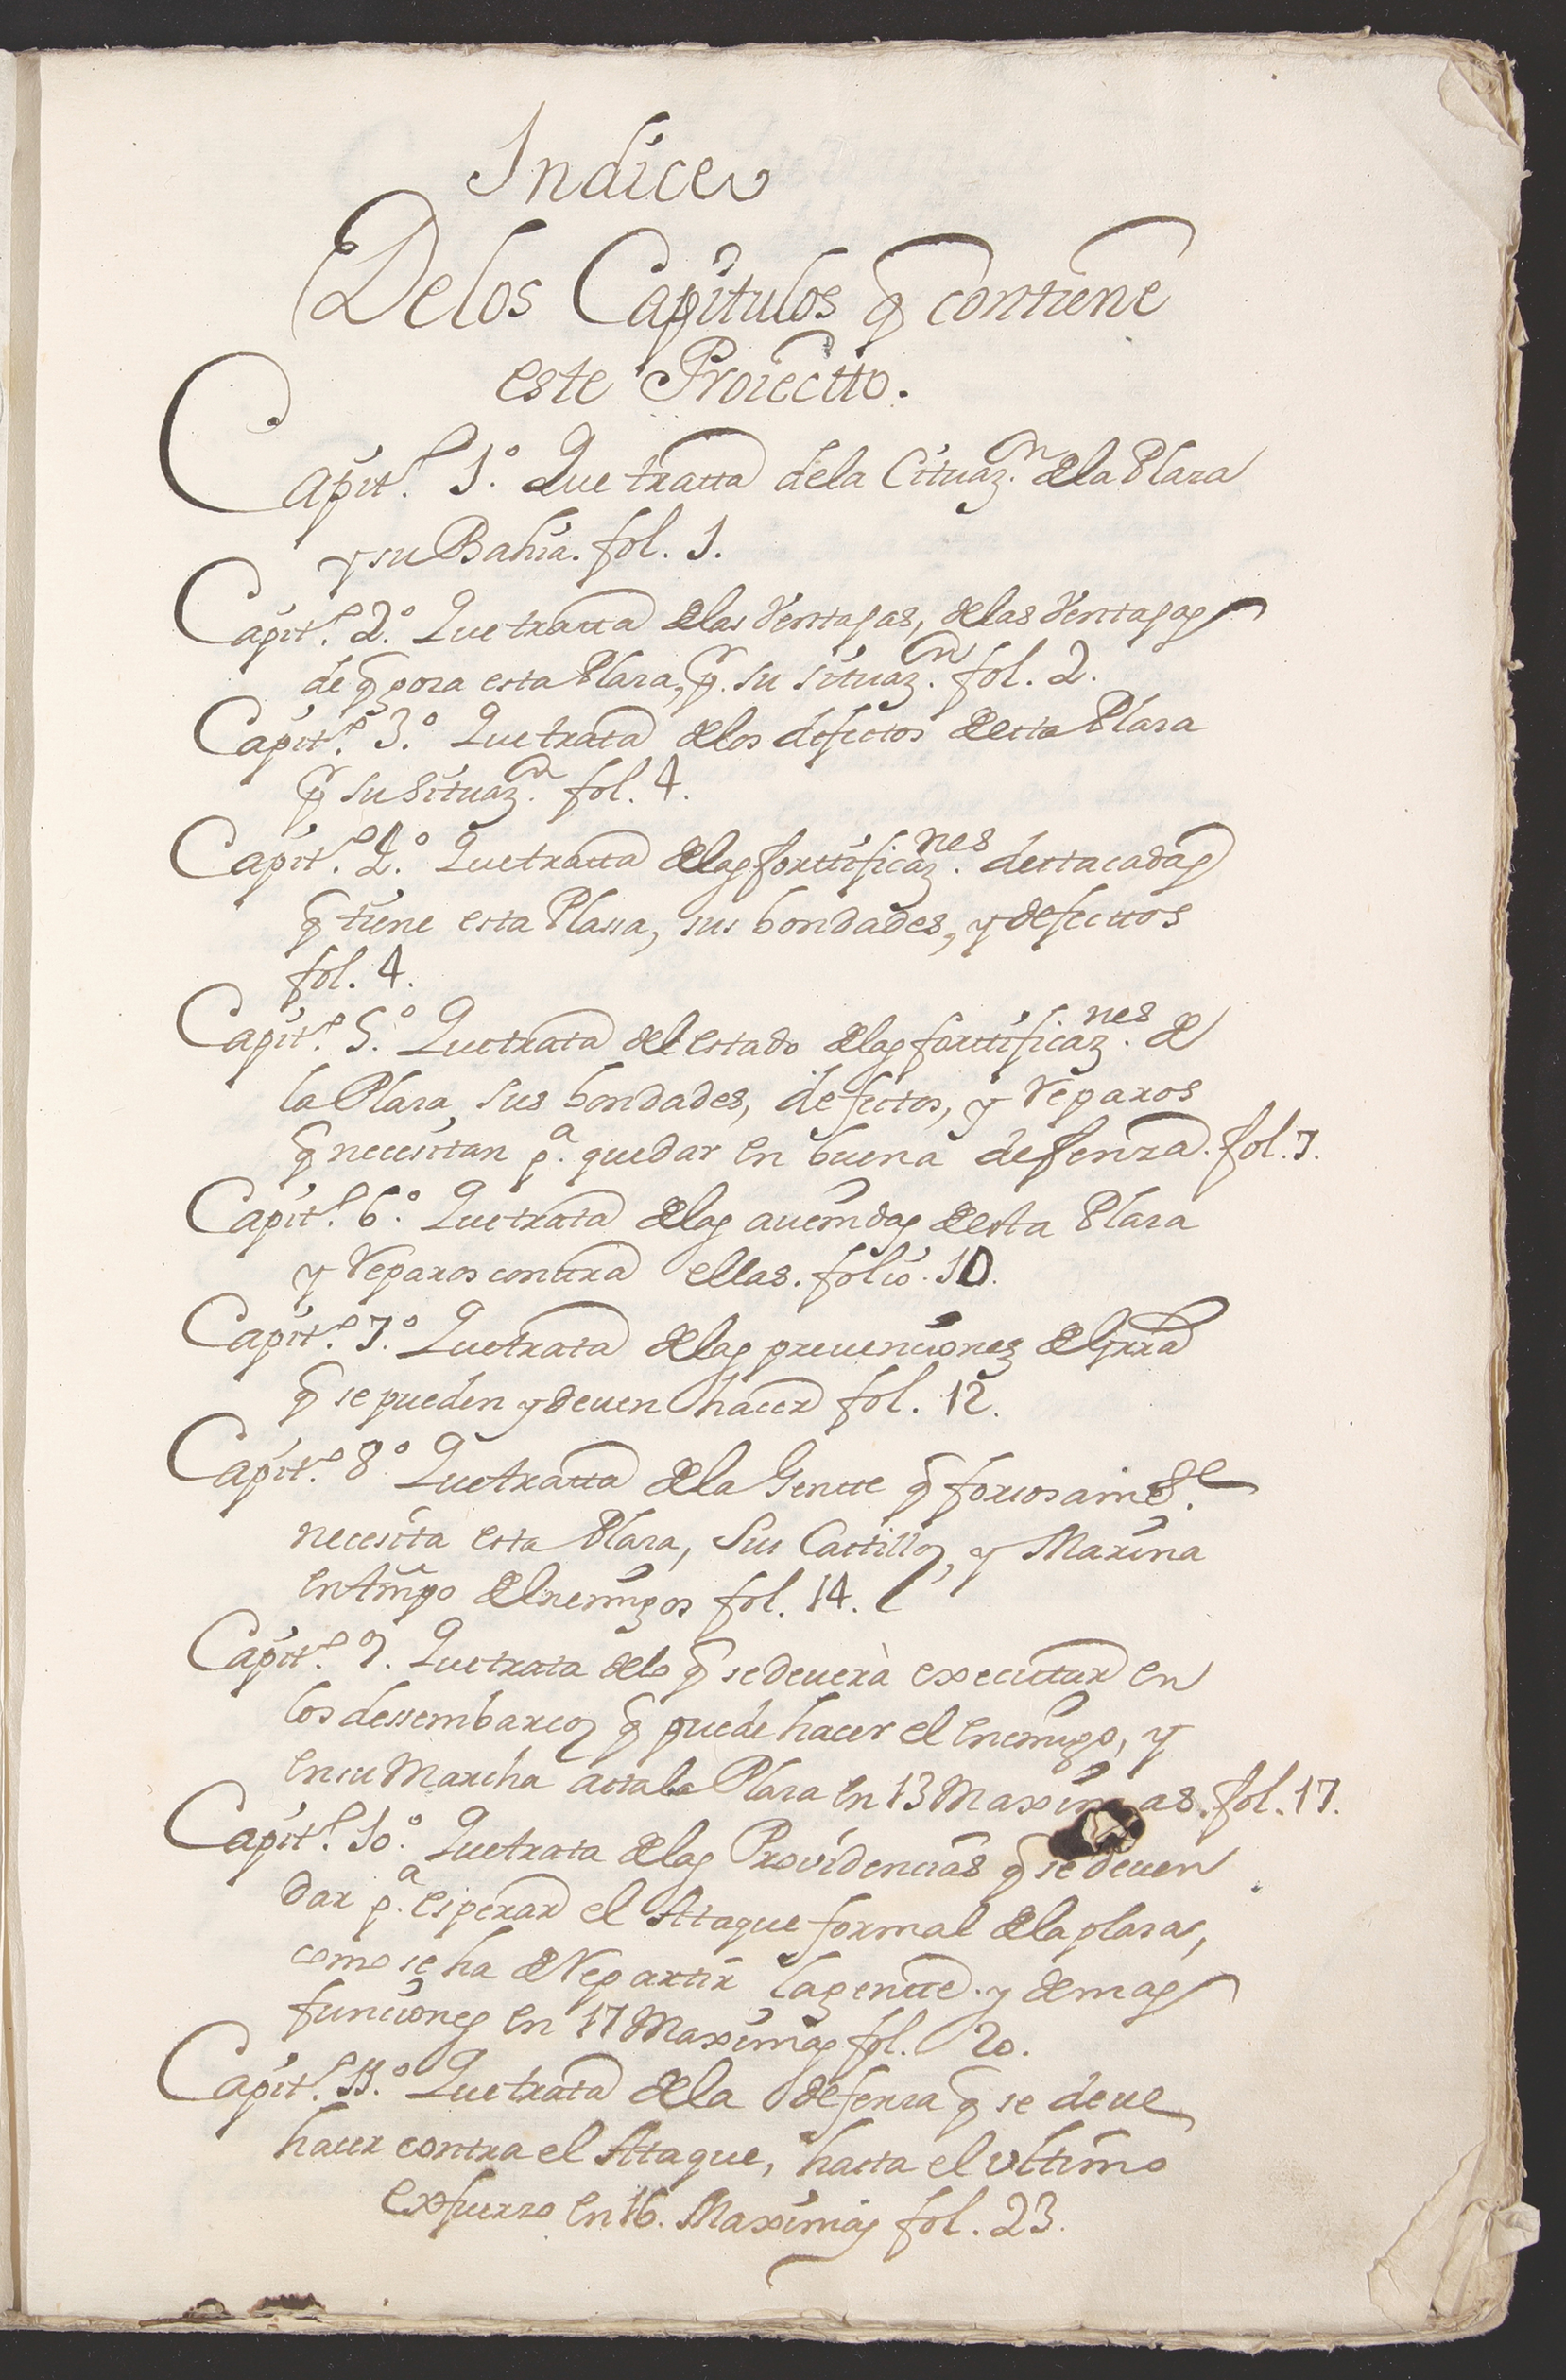 Indice
Delos Capitulos q̃ contiene
este Proiectto.
Capit.º 1.º Que tratta dela Cituaz.ⁿ dela Plaza
y su Bahia. fol. 1.
Capit.º 2.º Que tratta delas Ventajas, delas Ventajas
de q̃ goza esta Plaza, p̱. su situaz.ⁿ fol. 2.
Capit.º 3.º Que trata delos defectos desta Plaza
p̱ su situaz.ⁿ fol. 4.
Capit.º 4.º Que tratta delas forttificaz.ⁿᵉˢ destacadas
q̃ tiene esta Plassa, sus bondades, y defecttos
fol. 4.
Capit.º 5.º Que trata del estado delas forttificaz.ⁿᵉˢ de
la Plaza, sus bondades, defectos, y Reparos
q̃ necesitan p.ª quedar en buena defenza. fol. 7.
Capit.º 6.º Que trata delas auenidas desta Plaza
y Reparos contra ellas. folio. 10.
Capit.º 7.º Que trata delas preuenciones de Grrã
q̃ se pueden y deuen hacer fol. 12.
Capit.º 8.º Que tratta dela Gentte q̃ forzosam.ᵗᵉ
necesita esta Plaza, sus Castillos, y Marina
en tmpõ de Enemigos fol. 14.
Capit.º 9. Que trata delo q̃ se deuerà executar en
los dessembarcos q̃ puede hacer el Enemigo, y
en su Marcha asta la Plaza en 13 Maximas. fol. 17.
Capit.º 10.º Que trata delas Providencias q̃ se deuen
dar p.ª esperar el Ataque formal dela plaza,
como se ha de Repartir la gentte. y demas
funciones en 17 Maximas fol. 20.
Capit.º 11.º Que trata dela defensa q̃ se deue
hacer contra el Ataque, hasta el vltimo
exfuerzo en 16. Maximas fol. 23.